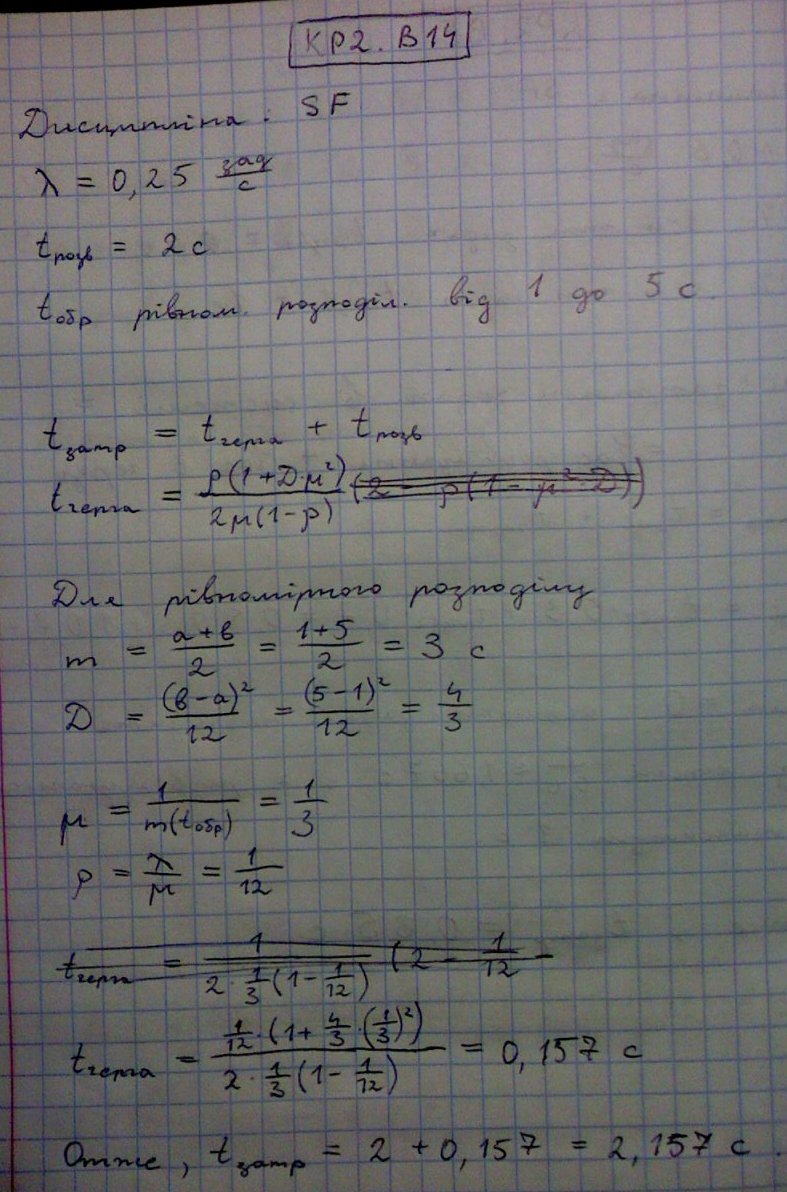 КР2. В14
Дисципліна: SF
λ = 0,25 зад/с
tрозв = 2 с
tобр рівном. розподіл. від 1 до 5 с.
tзатр = tчерга + tрозв
tчерга = ρ(1+D·μ²)/2μ(1-ρ) (2 - ρ(1 - μ²·D))
Для рівномірного розподілу
m = a+b/2 = 1+5/2 = 3 с
D = (b-a)²/12 = (5-1)²/12 = 4/3
μ = 1/m(tобр) = 1/3
ρ = λ/μ = 1/12
tчерга = 1/2·1/3(1-1/12) (2 - 1/12 -
tчерга = 1/12·(1+4/3·(1/3)²)/2·1/3(1-1/12) = 0,157 с
Отже, tзатр = 2 + 0,157 = 2,157 с.